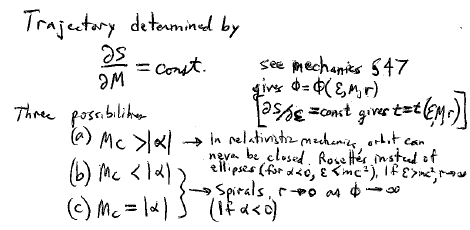 Trajectory determined by
∂S/∂M = const.
see mechanics §47
gives ϕ = ϕ(ε, M, r)
[∂S/∂ε = const gives t = t(ε, M, r)]
Three possibilities
(a) Mc > |α| → In relativistic mechanics, orbit can
never be closed. Rosettes instead of
ellipses (for α<0, ε<mc²). If ε>mc², r→∞
(b) Mc < |α|
(c) Mc = |α|
} → Spirals, r→0 as ϕ→∞
(If α<0)